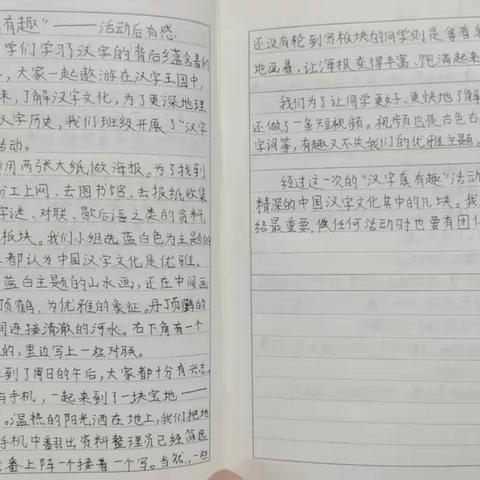 有趣”——活动后有感
学们学习了汉字的背后蕴含着的
，大家一起遨游在汉字王国中，
来，了解汉字文化，为了更深地理
汉字历史，我们班级开展了“汉字
活动。
用两张大纸做海报。为了找到
分工上网、去图书馆、去报纸收集
字谜、对联、歇后语之类的资料，
板块。我们小组选蓝白色为主题的
都认为中国汉字文化是优雅、
蓝白主题的山水画，还在中间画
顶鹤，为优雅的象征。丹顶鹤的
间连接清澈的河水。右下角有一个
的，里边写上一些对联。
到了周日的午后，大家都十分有兴志，
手机，一起来到了一块宝地——
。温热的阳光洒在地上，我们把地
手机中翻出资料整理员已经筛选
番上阵一个接着一个写。当然，一些
还没有轮到写板块的同学则是拿着
地画着，让海报变得丰富、饱满起来
我们为了让同学更好、更快地了解
还做了一条短视频。视频也是古色古
字词等，有趣又不失我们的优雅主题。
经过这一次的“汉字真有趣”活动
精深的中国汉字文化其中的几块。我
结最重要，做任何活动时也要有团